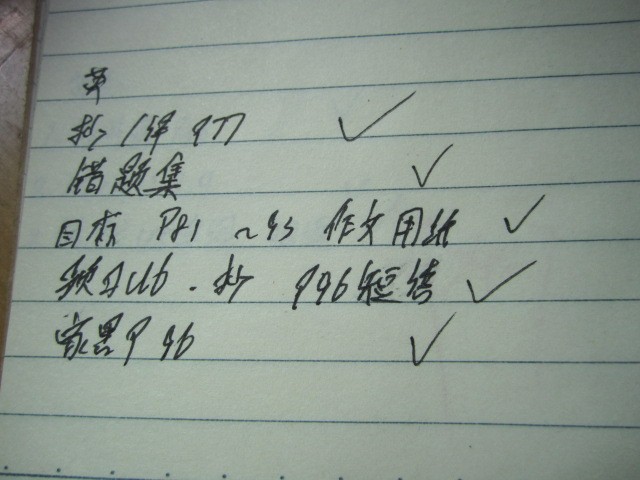 英
抄、译 P77 ✓
错题集 ✓
目标 P81 ~ 93 作文用纸 ✓
预习U6. 抄 P96短语 ✓
家黑P96 ✓